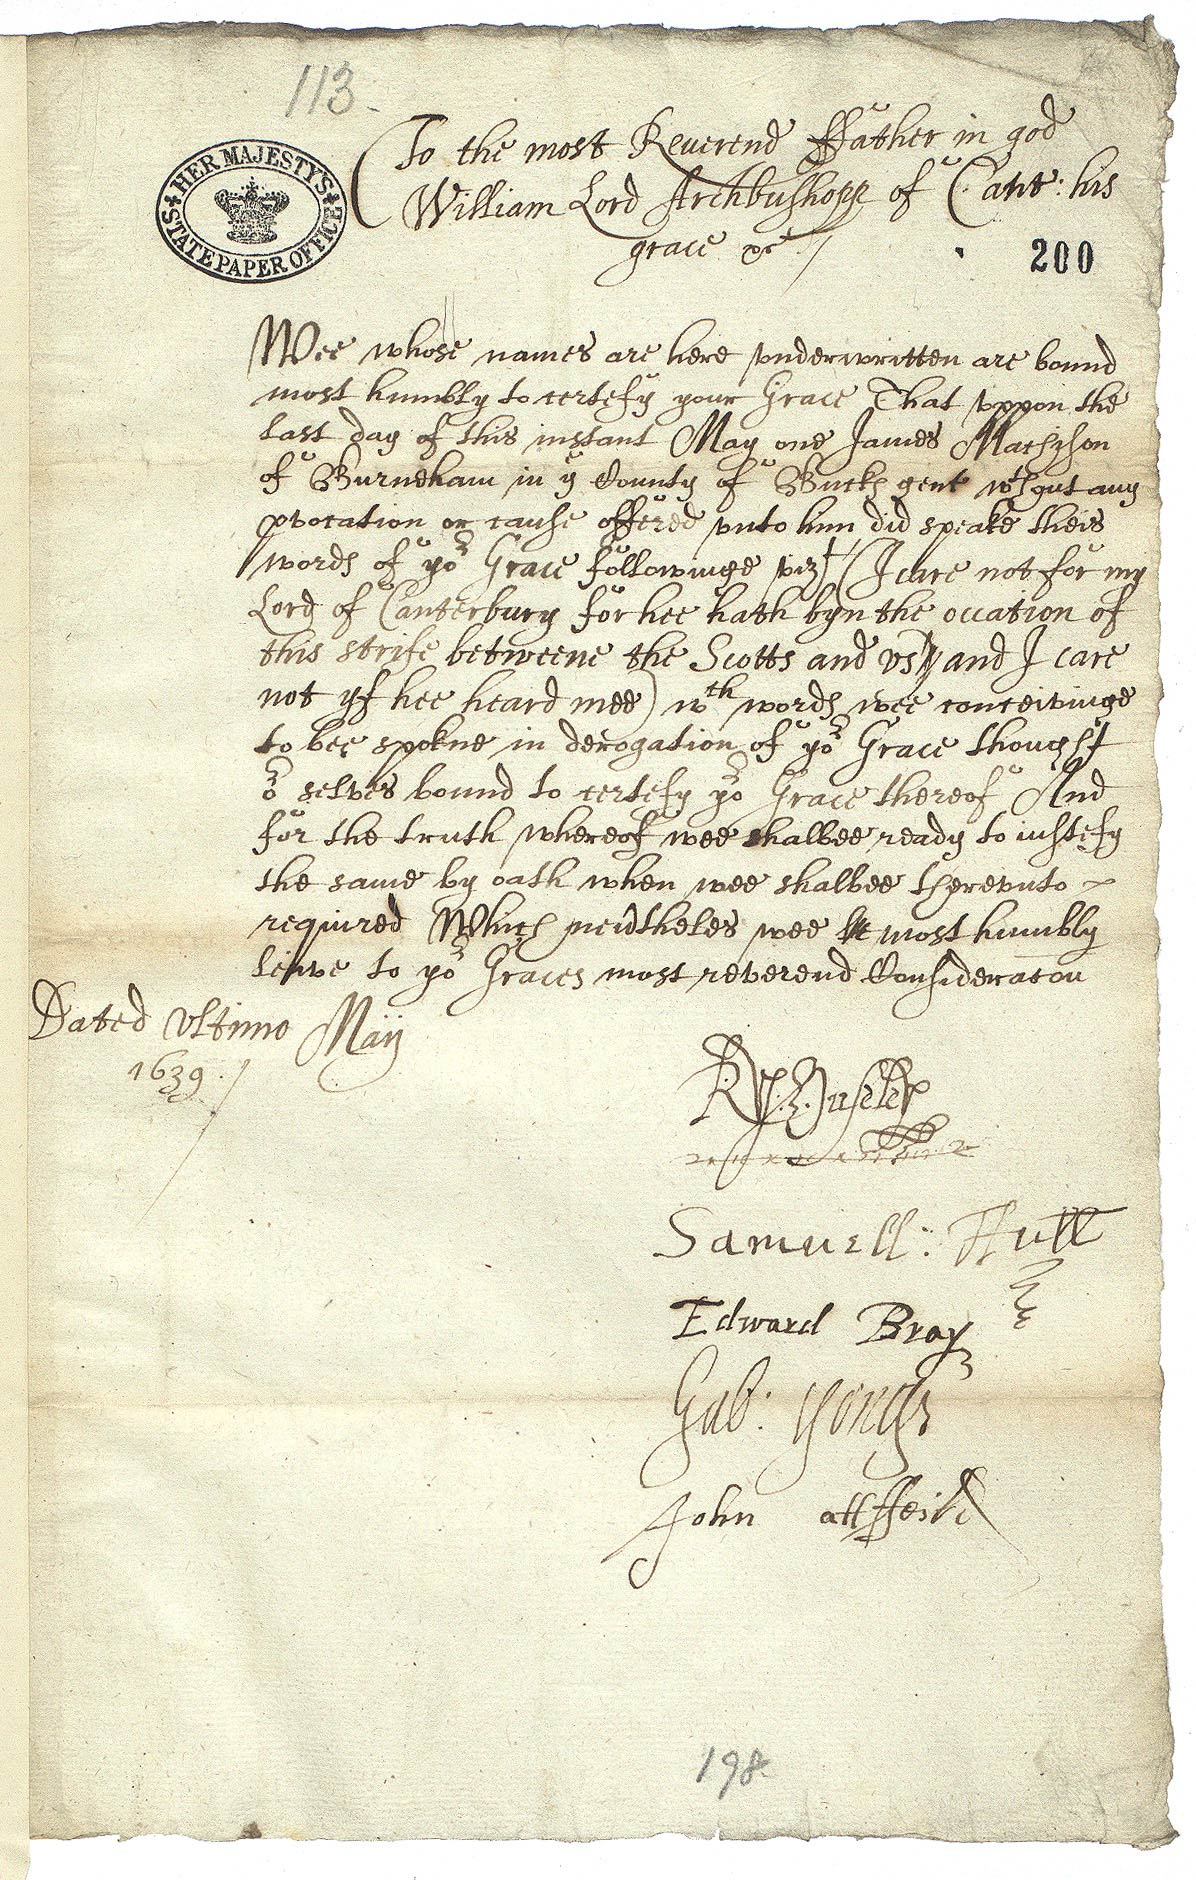 113.
HER MAJESTY'S STATE PAPER OFFICE
To the most Reverend ffather in god
William Lord Archbushopp of Cant: his
grace &c /
200
Wee whose names are here vnderwritten are bound
most humbly to certefy your Grace That vppon the
last day of this instant May one James Machison
of Burneham in ye County of Bucks gent wthout any
pvocation or cause offered vnto him did speake theis
words of yor Grace followinge vizt (I care not for my
Lord of Canterbury for hee hath byn the occation of
this strife betweene the Scotts and vs and I care
not yf hee heard mee) wth words wee conceivinge
to bee spokne in derogation of yor Grace thought
or selves bound to certefy yor Grace thereof And
for the truth whereof wee shalbee ready to iustefy
the same by oath when wee shalbee therevnto
required Which neidtheles wee most humbly
leive to yor Graces most reverend Consideracon
Dated vltimo Maij
1639 /
Samuell: Hull
Edward Bray
Gab:
John attffeild
198